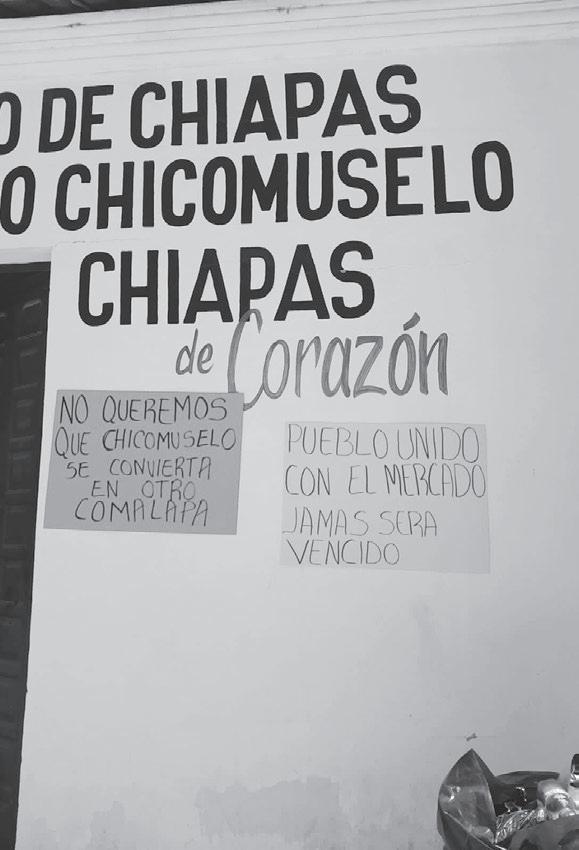 O DE CHIAPAS
O CHICOMUSELO
CHIAPAS
de Corazón
NO QUEREMOS
QUE CHICOMUSELO
SE CONVIERTA
EN OTRO
COMALAPA
PUEBLO UNIDO
CON EL MERCADO
JAMAS SERA
VENCIDO